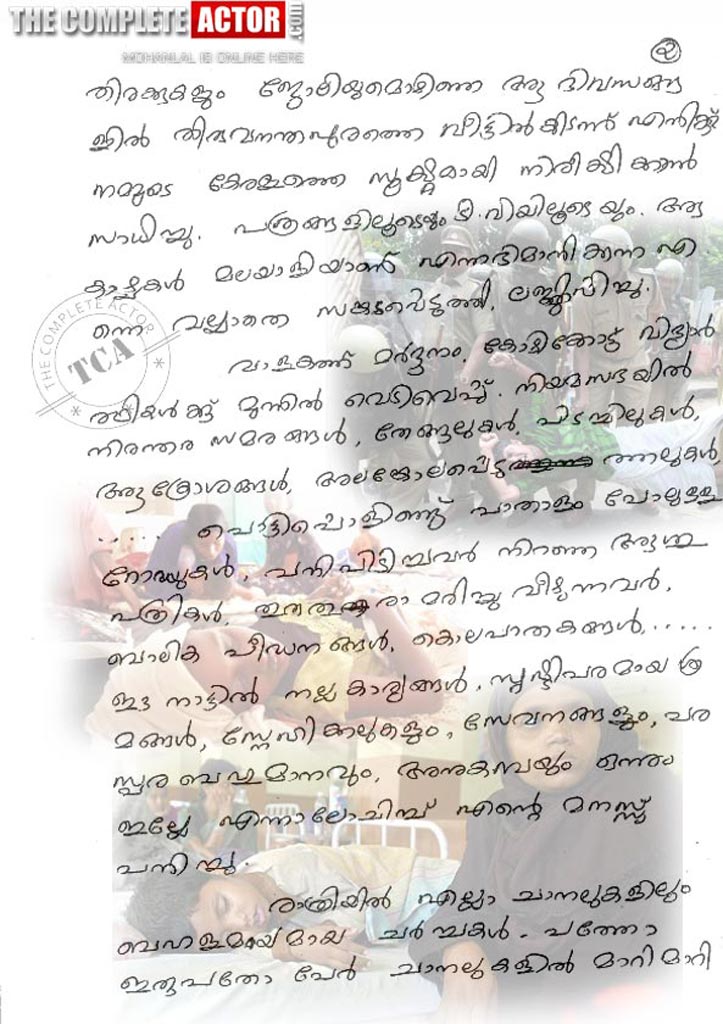 THE COMPLETE ACTOR .COM
MOHANLAL IS ONLINE HERE
൨
തിരക്കുകളും ജോലിയുമൊഴിഞ്ഞ ആ ദിവസങ്ങ
ളിൽ തിരുവനന്തപുരത്തെ വീട്ടിൽകിടന്ന് എനിക്ക്
നമ്മുടെ കേരളത്തെ സൂക്ഷ്മമായി നിരീക്ഷിക്കാൻ
സാധിച്ചു. പത്രങ്ങളിലൂടെയും ടി.വിയിലൂടെയും. ആ
കാഴ്ചകൾ മലയാളിയാണ് എന്നഭിമാനിക്കുന്ന എ
ന്നെ വല്ലാതെ സങ്കടപ്പെടുത്തി, ലജ്ജിപ്പിച്ചു.
വാളകത്ത് മർദ്ദനം, കോഴിക്കോട്ട് വിദ്യാർ
ത്ഥികൾക്ക് മുന്നിൽ വെടിവെപ്പ്. നിയമസഭയിൽ
നിരന്തര സമരങ്ങൾ, തേങ്ങലുകൾ, പിടച്ചിലുകൾ,
ആക്രോശങ്ങൾ, അലങ്കോലപ്പെടു ത്തലുകൾ,
..... പൊട്ടിപ്പൊളിഞ്ഞ് പാതാളം പോലുള്ള
റോഡുകൾ, പനിപിടിച്ചവർ നിറഞ്ഞ ആശു
പത്രികൾ, തുരുതുരാ മരിച്ചു വീഴുന്നവർ,
ബാലികാ പീഡനങ്ങൾ, കൊലപാതകങ്ങൾ,.....
ഈ നാട്ടിൽ നല്ല കാര്യങ്ങൾ, സൃഷ്ടിപരമായ ശ്ര
മങ്ങൾ, സ്നേഹിക്കലുകളും, സേവനങ്ങളും, പര
സ്പര ബഹുമാനവും, അനുകമ്പയും ഒന്നും
ഇല്ലേ എന്നാലോചിച്ച് എന്റെ മനസ്സ്
പനിച്ചു.
രാത്രിയിൽ എല്ലാ ചാനലുകളിലും
ബഹളമയമായ ചർച്ചകൾ. പത്തോ
ഇരുപതോ പേർ ചാനലുകളിൽ മാറി മാറി
THE COMPLETE ACTOR
TCA